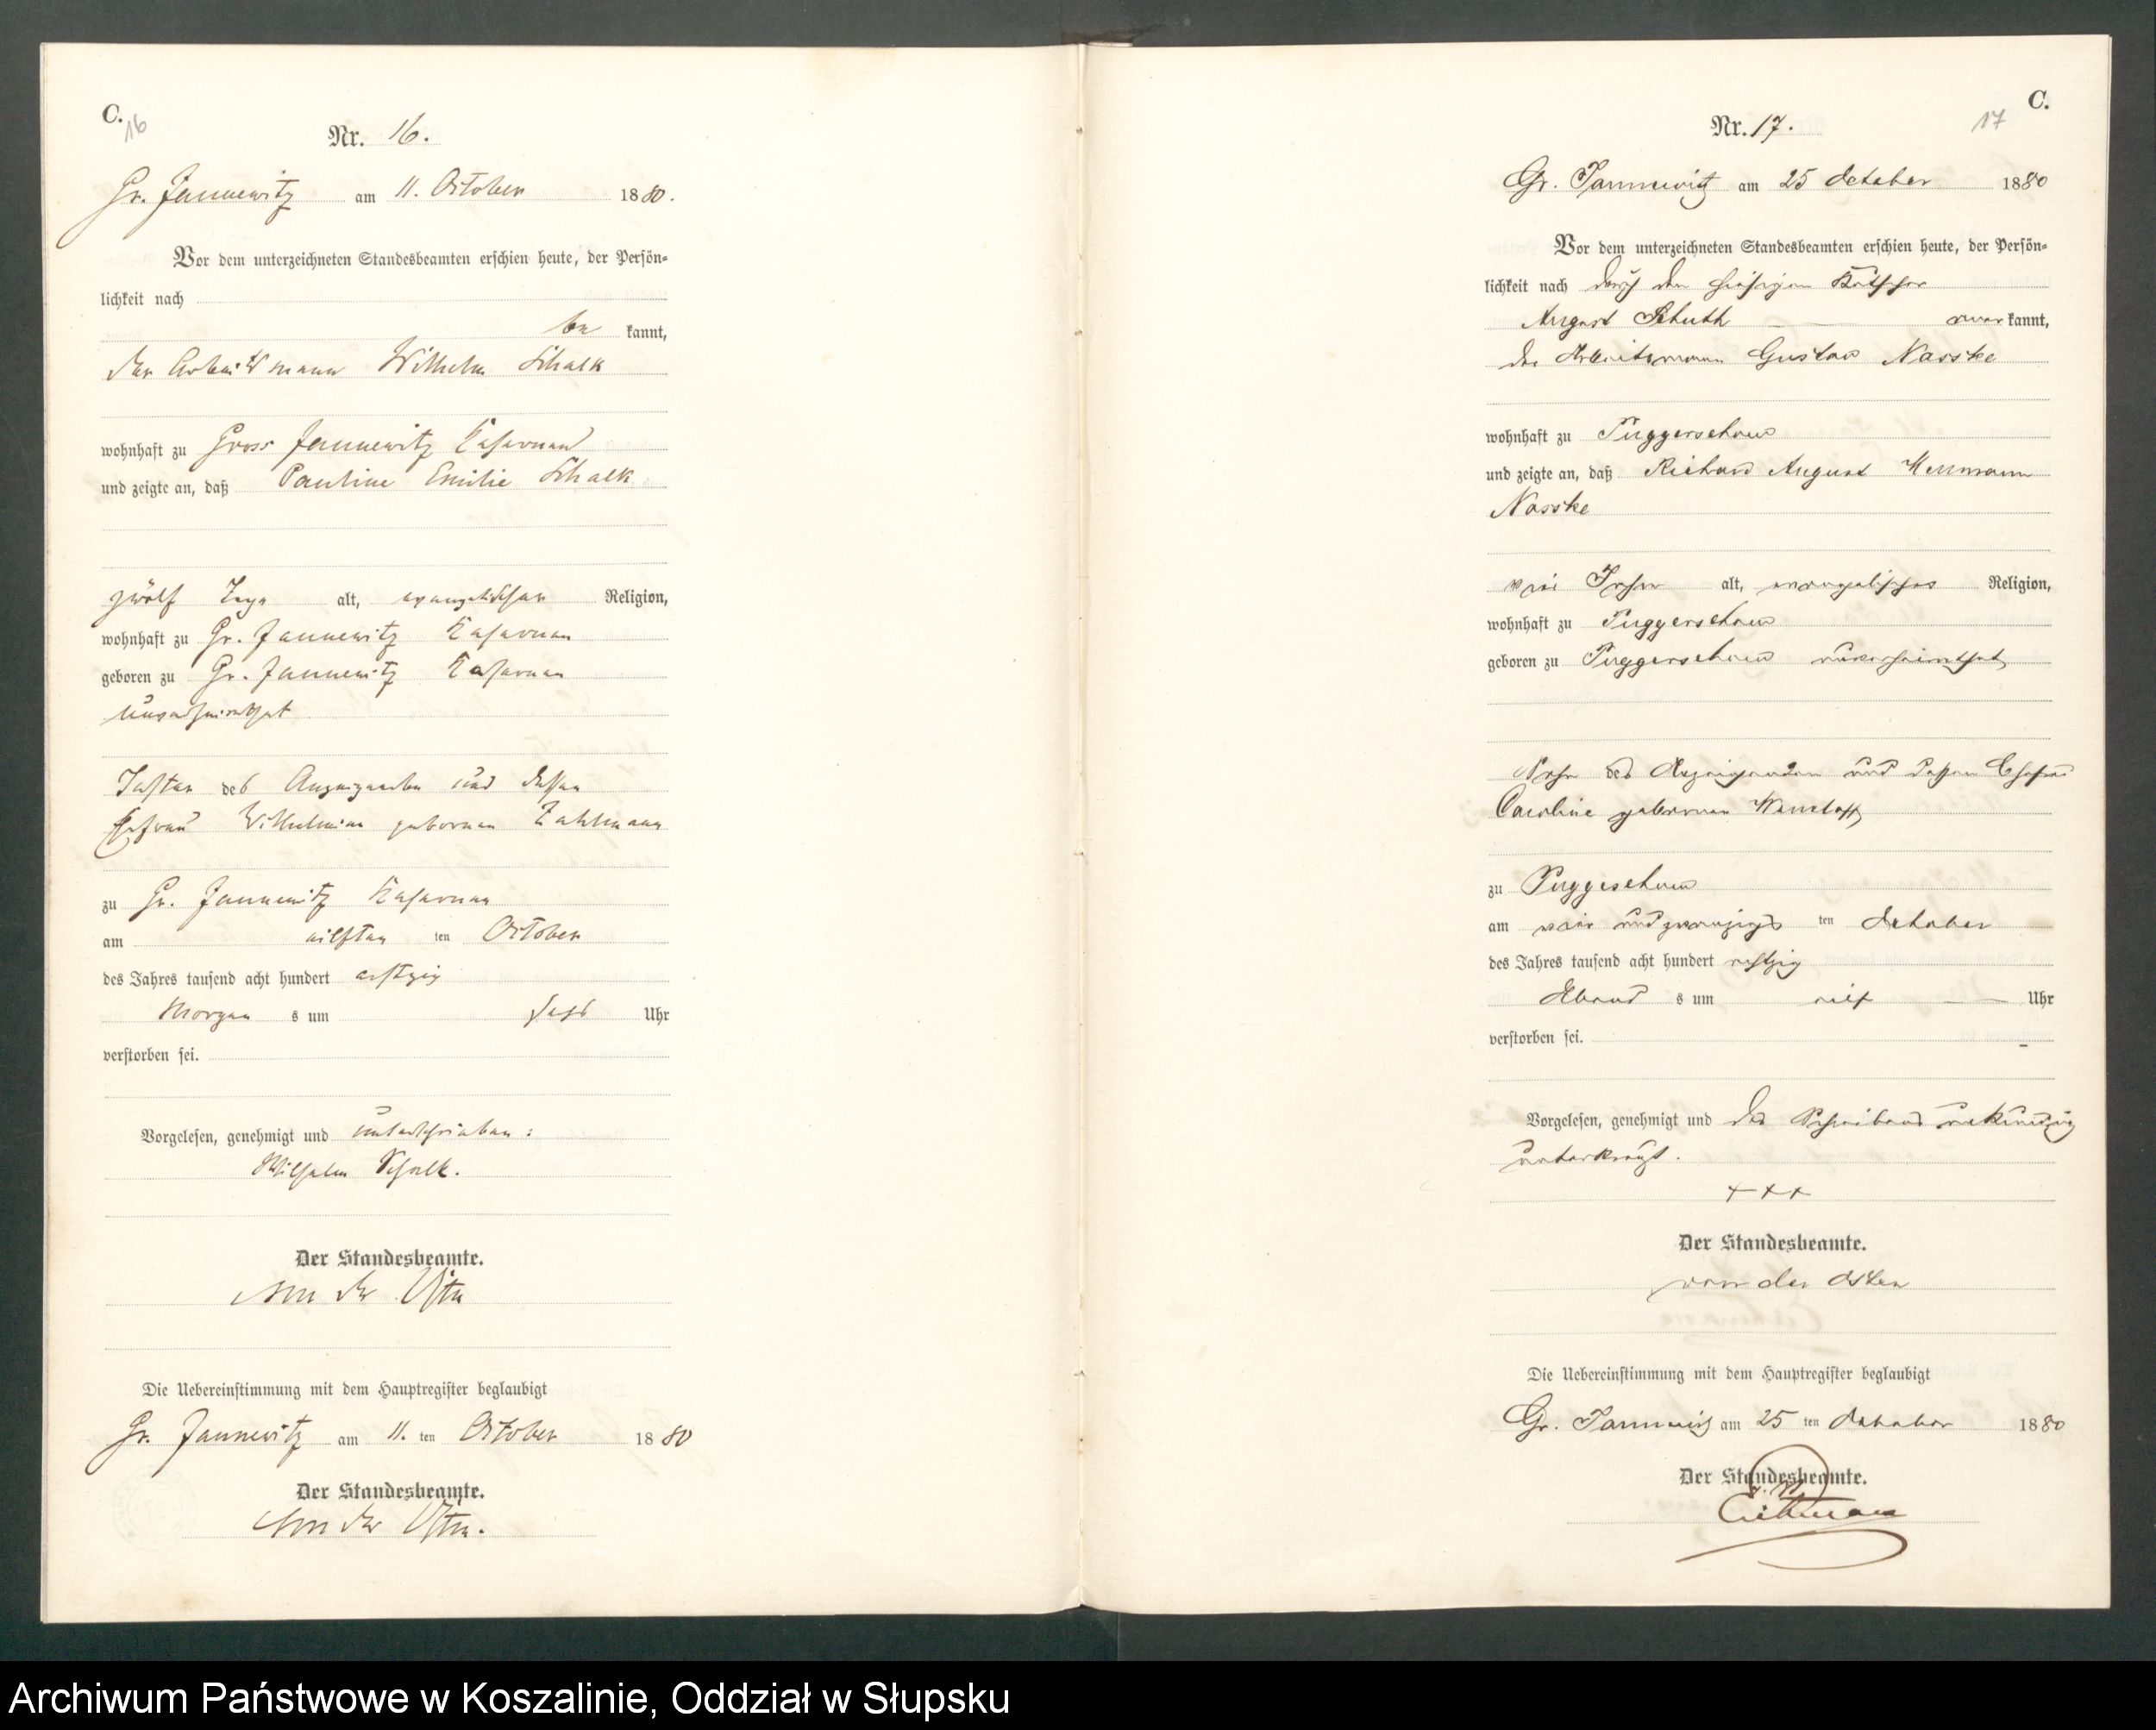 C.
16
Nr. 16.
Gr. Jannewitz am 11. October 1880.
Vor dem unterzeichneten Standesbeamten erschien heute, der Persön-
lichkeit nach
be kannt,
der Arbeitsmann Wilhelm Schalk
wohnhaft zu Gross Jannewitz
und zeigte an, daß Pauline Emilie Schalk
zwölf Tage alt, evangelischer Religion,
wohnhaft zu Gr. Jannewitz
geboren zu Gr. Jannewitz
unverheirathet
Tochter des Anzeigenden und dessen
Ehefrau Wilhelmine geborenen
zu Gr. Jannewitz
am eilften ten October
des Jahres tausend acht hundert achtzig
Morgen s um sechs Uhr
verstorben sei.
Vorgelesen, genehmigt und unterschrieben:
Wilhelm Schalk.
Der Standesbeamte.
von der Osten
Die Uebereinstimmung mit dem Hauptregister beglaubigt
Gr. Jannewitz am 11. ten October 1880
Der Standesbeamte.
von der Osten.
C.
17
Nr. 17.
Gr. Jannewitz am 25 October 1880
Vor dem unterzeichneten Standesbeamten erschien heute, der Persön-
lichkeit nach durch den hiesigen
August kannt,
der Arbeitsmann Gustav Nasske
wohnhaft zu Puggerschow
und zeigte an, daß Richard August Hermann
Nasske
Jahr alt, evangelischer Religion,
wohnhaft zu Puggerschow
geboren zu Puggerschow unverheirathet
Sohn des Anzeigenden und dessen Ehefrau
Caroline geborenen
zu Puggeschow
am undzwanzigs ten October
des Jahres tausend acht hundert achtzig
Abend s um eilf Uhr
verstorben sei.
Vorgelesen, genehmigt und des Schreibens unkundig
unterkreuzt.
+++
Der Standesbeamte.
von der Osten
Die Uebereinstimmung mit dem Hauptregister beglaubigt
Gr. Jannewitz am 25 ten October 1880
Der Standesbeamte.
Archiwum Państwowe w Koszalinie, Oddział w Słupsku